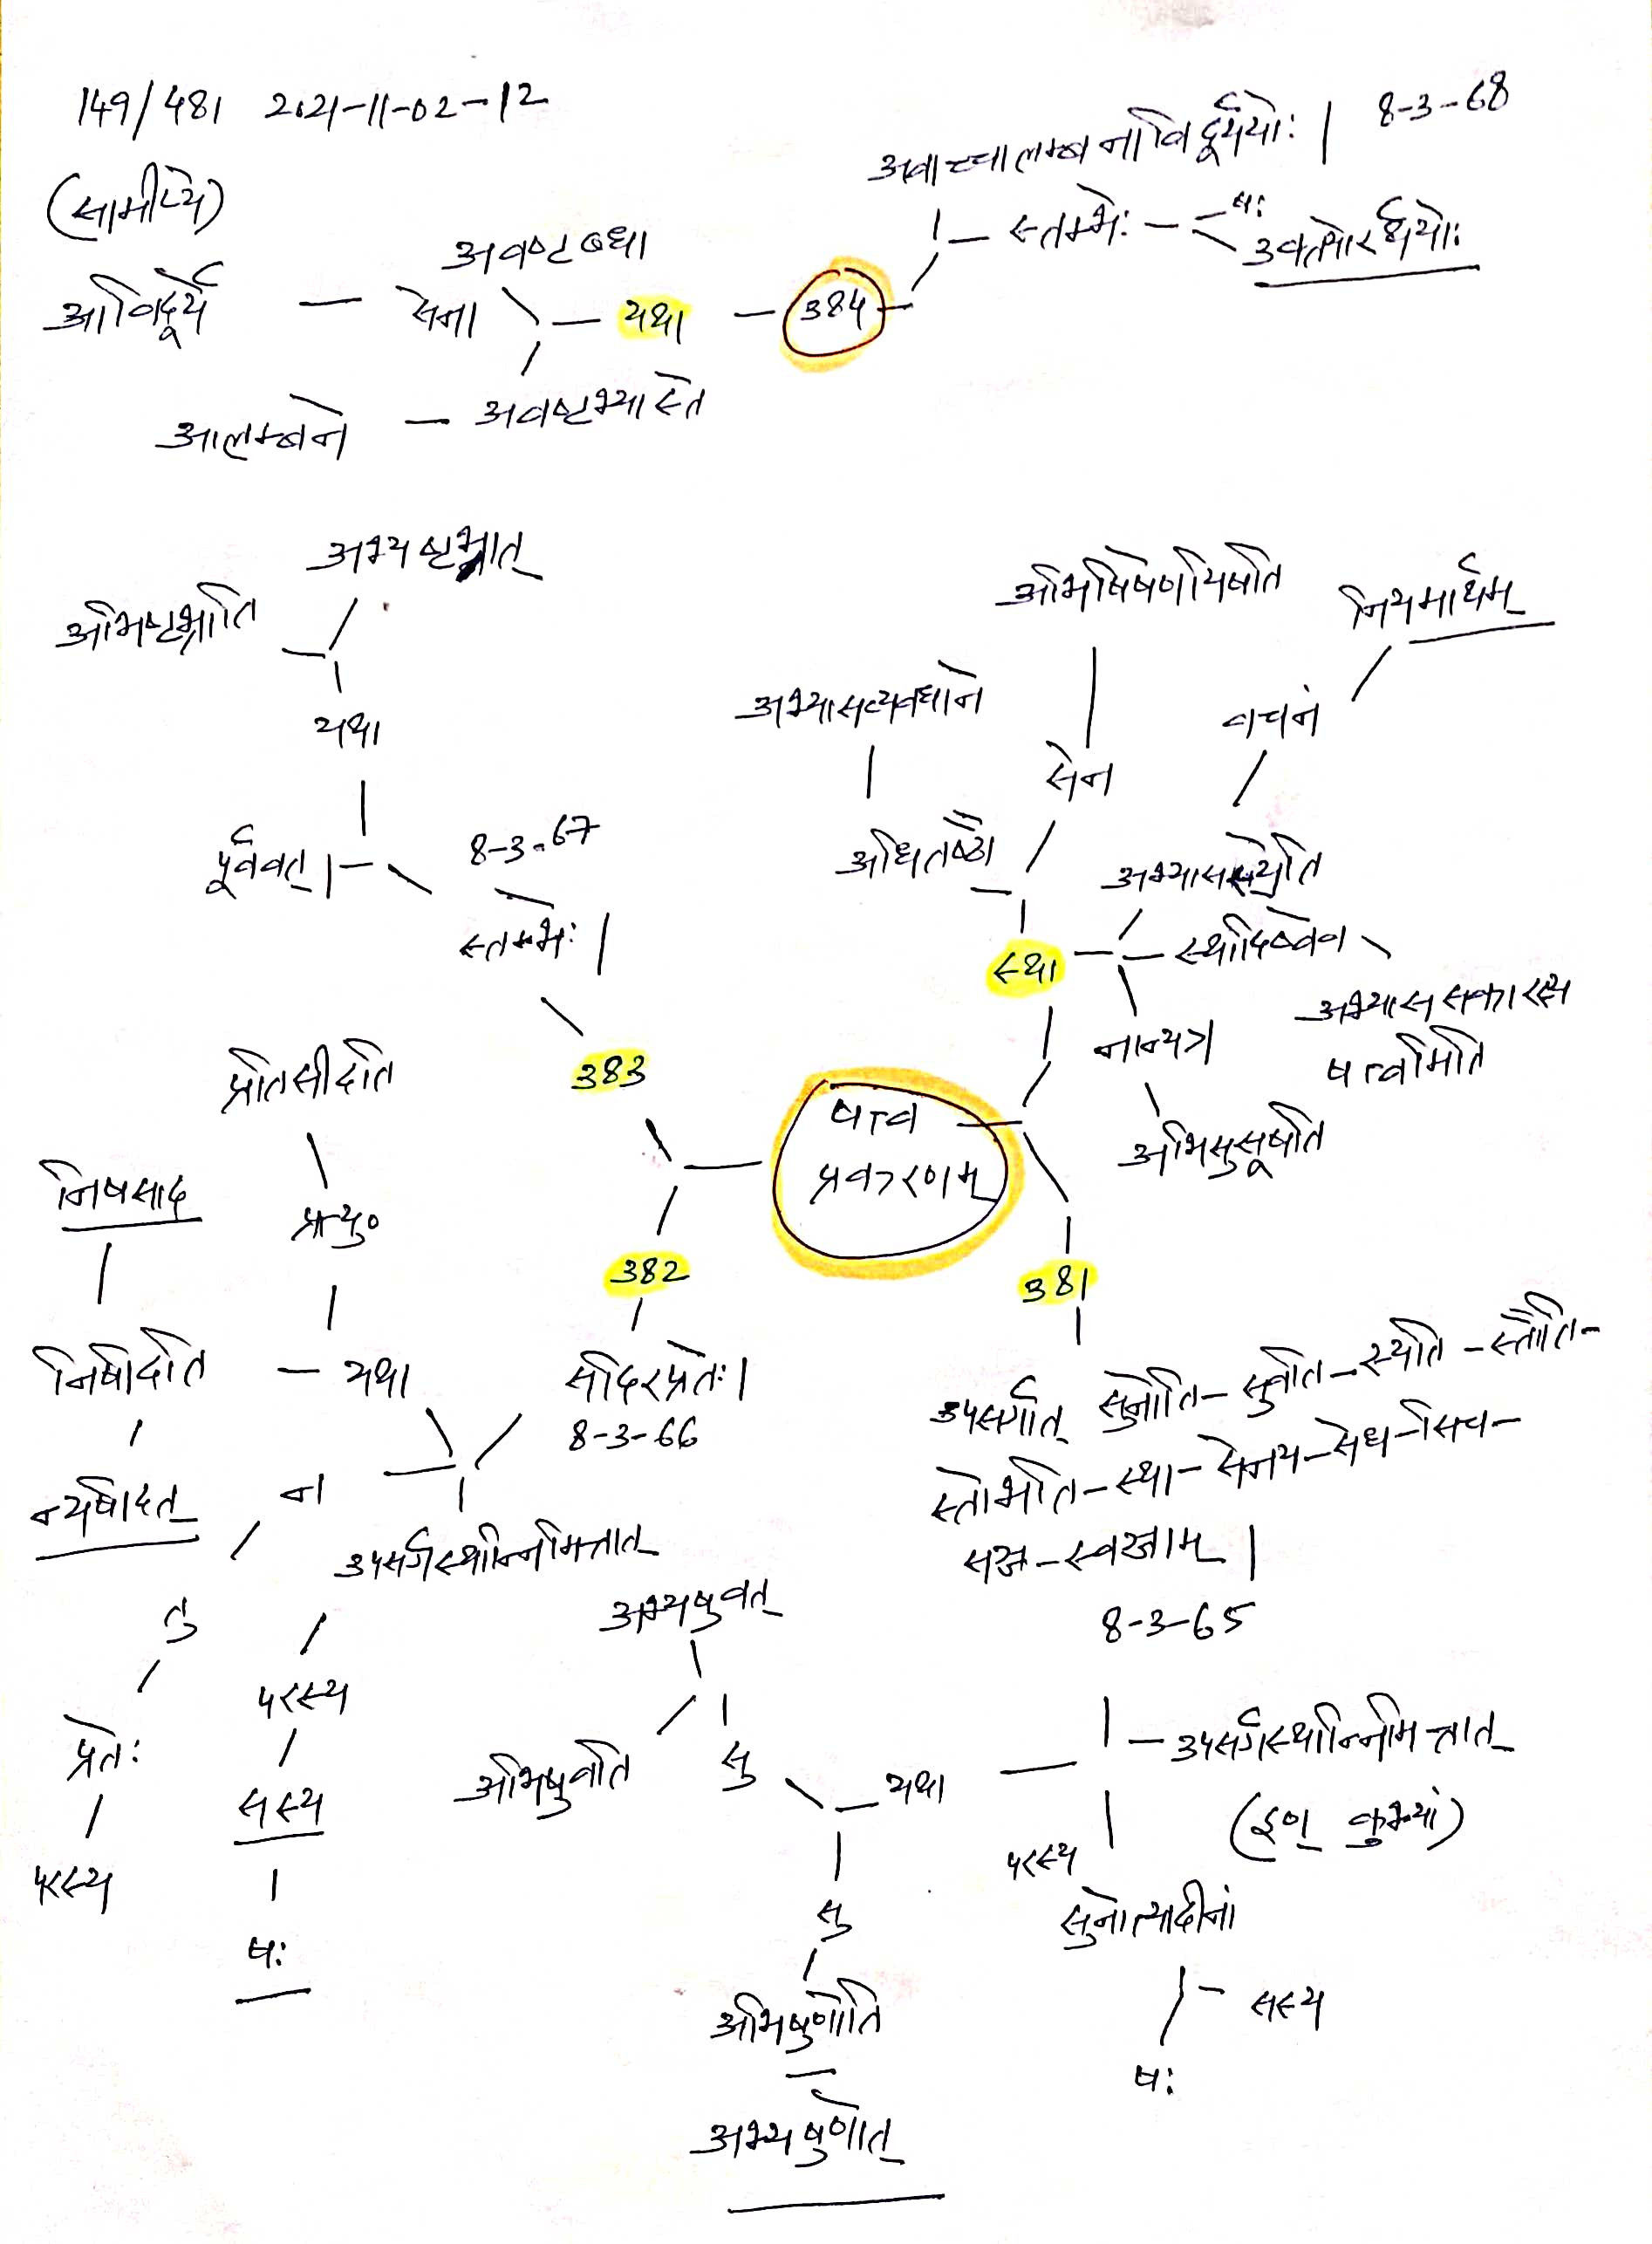 149/481 2021-11-02-12
अवाच्चालम्बनाविदूर्ययोः | 8-3-68
(सामीप्ये)
अवष्टब्धा
स्तम्भेः - षः
आविदूर्ये - सेना - यथा - 384
आलम्बने - अवष्टभ्यास्ते
अभिष्टभ्नाति
अभिषिषेणयिषति
नियमार्थम्
अभ्यासव्यवधाने
वचनं
यथा
सेन
8-3-67
पूर्ववत् |
अधितष्ठौ
स्तम्भेः |
स्था - स्थादिष्वेव
नान्यत्र
अभ्याससकारस्य
षत्वमिति
प्रतिसीदति
383
षत्व
प्रकरणम्
अभिसुसूषति
निषसाद
382
381
निषीदति - यथा
सीदिरप्रतेः |
8-3-66
उपसर्गात् सुनोति-सुवति-स्यति-स्तौति-
स्तोभति-स्था-सेनय-सेध-सिच-
सञ्ज-स्वञ्जाम् |
8-3-65
न्यषीदत्
न
उपसर्गस्थान्निमित्तात्
अभ्यषुवत्
तु
परस्य
प्रतेः
सस्य
परस्य
षः
अभिषुवति
सु
यथा
उपसर्गस्थान्निमित्तात्
(इण् कुभ्यां)
परस्य
सुनोत्यादीनां
सु
सस्य
षः
अभिषुणोति
अभ्यषुणोत्